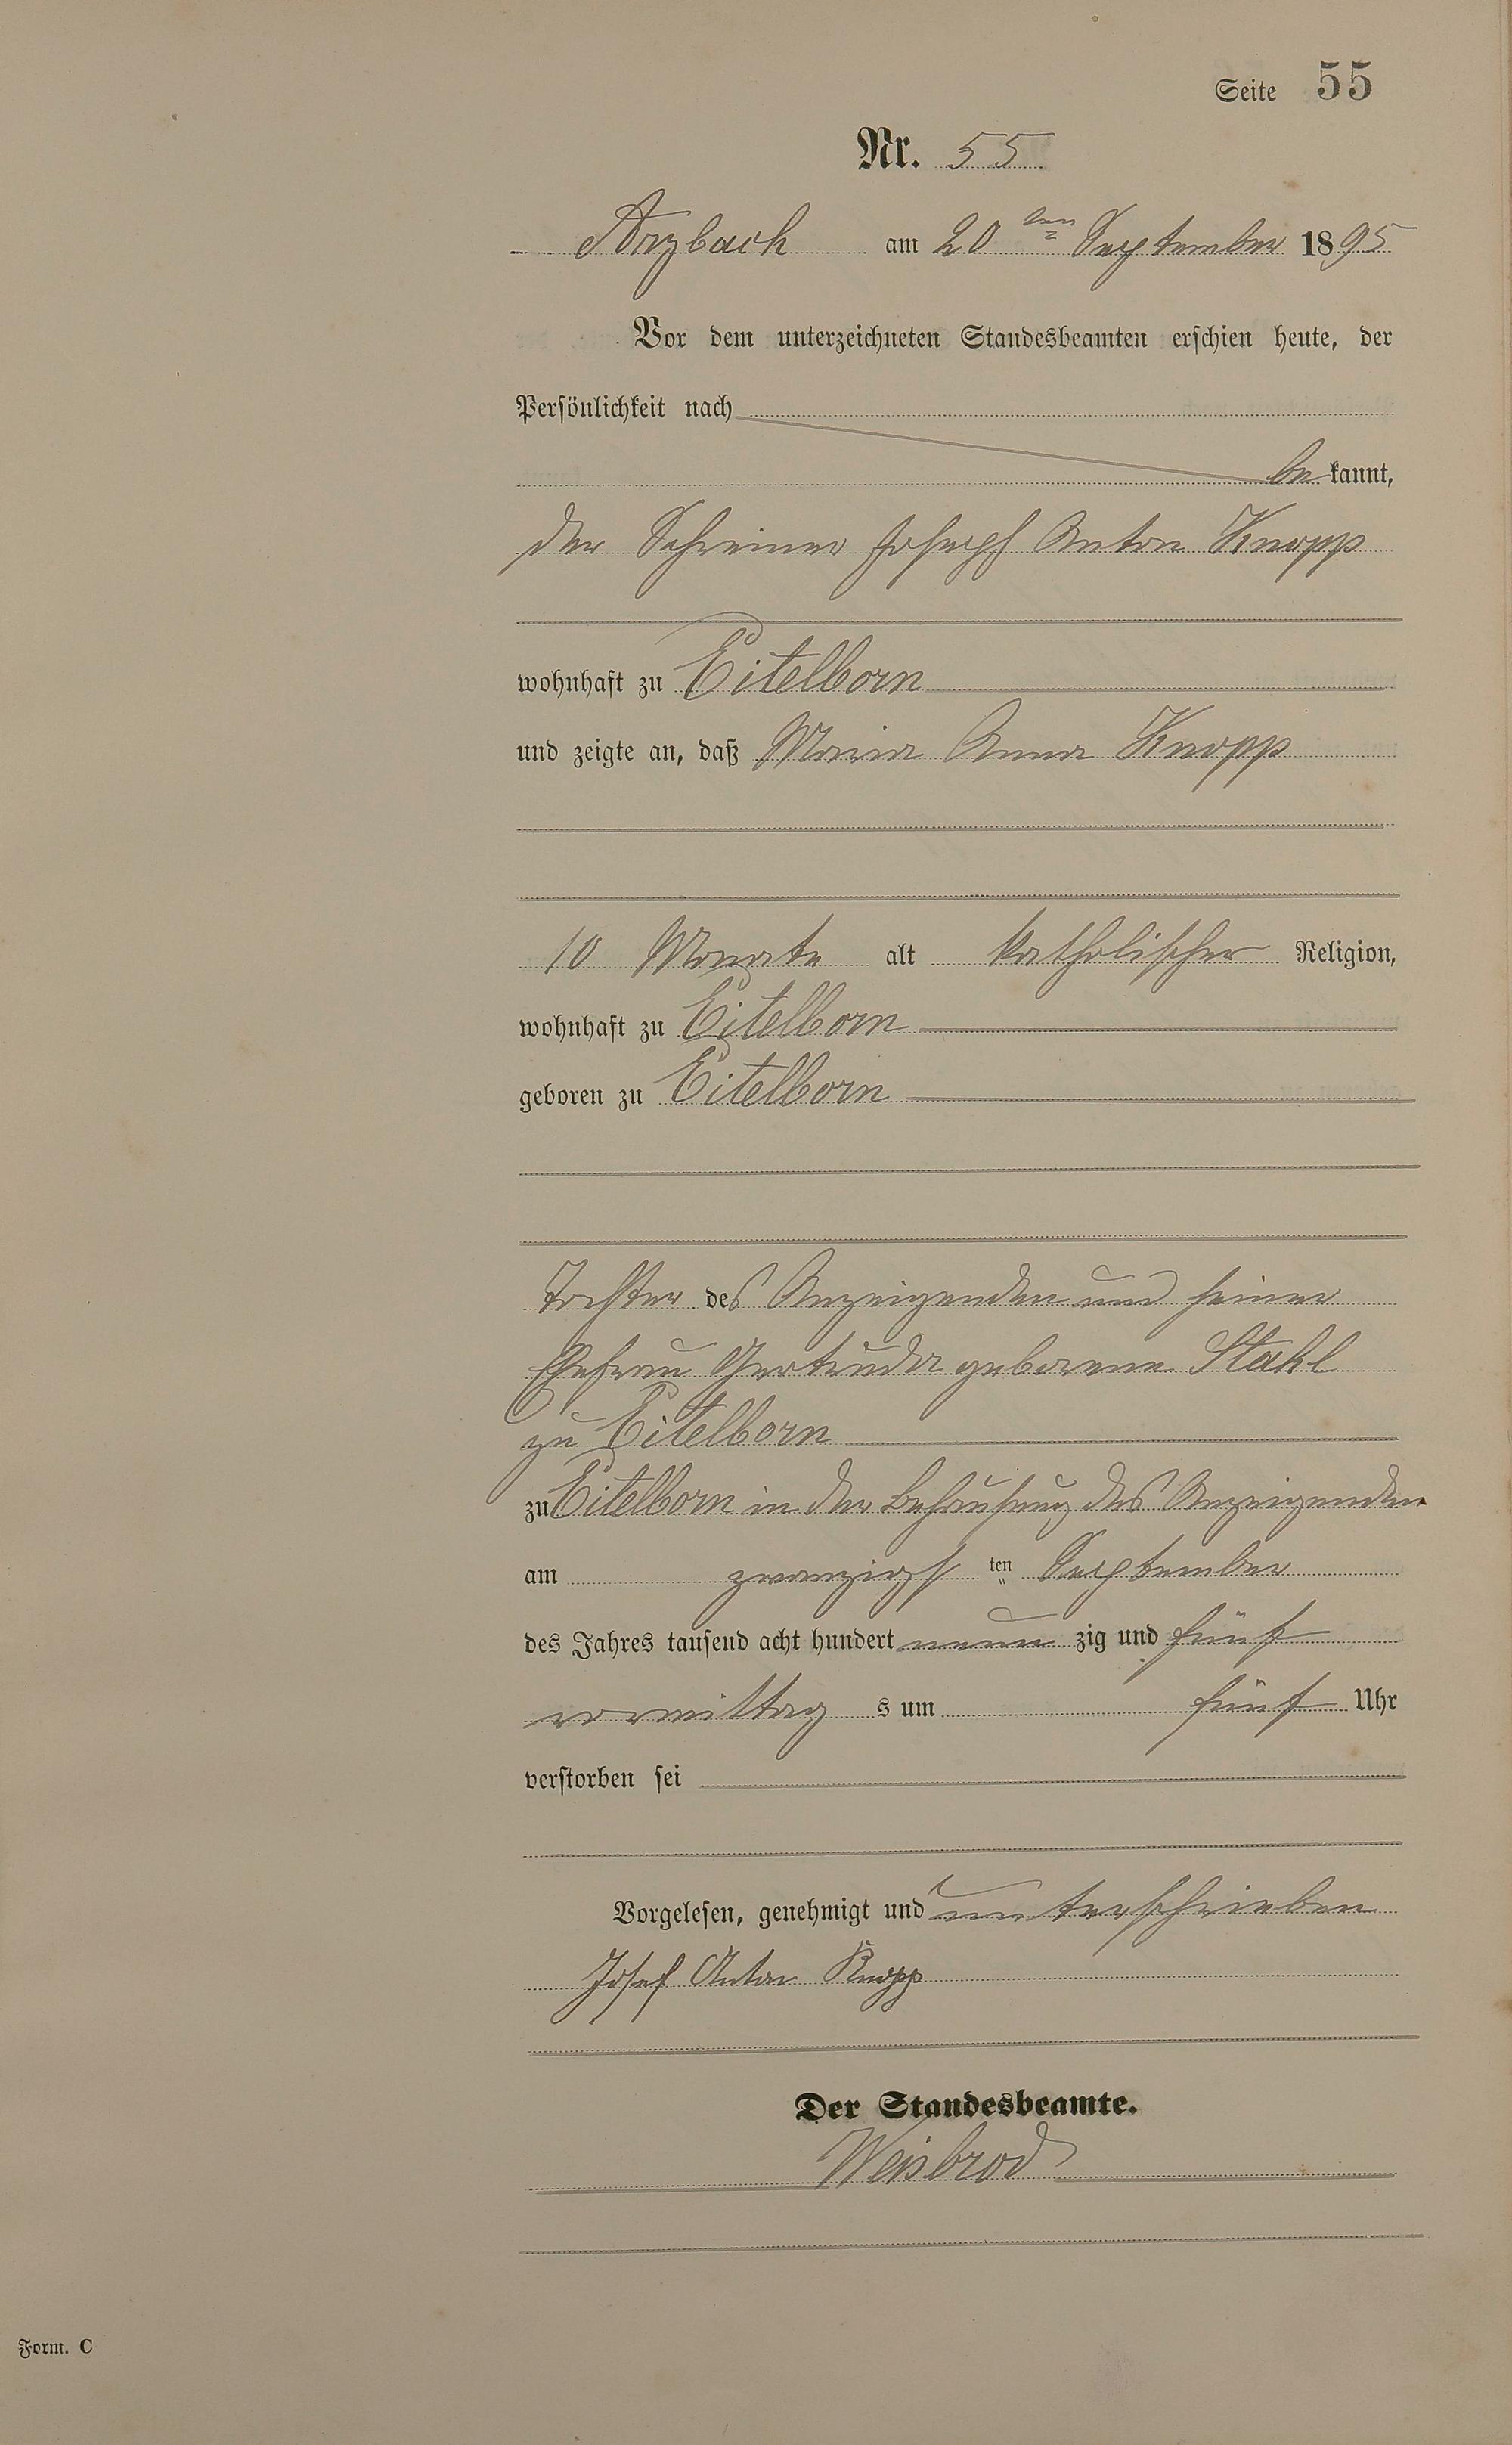 Seite 55
Nr. 55
Arzbach am 20ten September 1895
Vor dem unterzeichneten Standesbeamten erschien heute, der
Persönlichkeit nach
bekannt,
der Schreiner Joseph Anton Knopp
wohnhaft zu Eitelborn
und zeigte an, daß Maria Anna Knopp
10 Monate alt katholischer Religion,
wohnhaft zu Eitelborn
geboren zu Eitelborn
Tochter des Anzeigenden und seiner
Ehefrau Gertruda geborene Stahl
zu Eitelborn
zu Eitelborn in der Behausung des Anzeigenden
am zwanzigsten September
des Jahres tausend acht hundert neunzig und fünf
vormittags um fünf Uhr
verstorben sei
Vorgelesen, genehmigt und unterschrieben
Josef Anton Knopp
Der Standesbeamte.
Weisbrod
Form. C